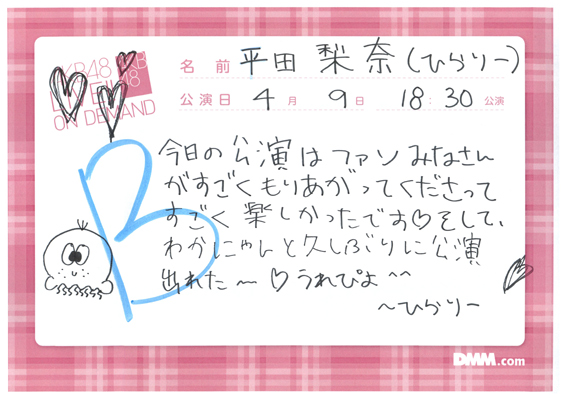 AKB48
LIVE!!
ON DEMAND
AKB
48
名前 平田 梨奈(ひらりー)
公演日 4月 9日 18:30公演
B
今日の公演はファンみなさん
がすごくもりあがってくださって
すごく楽しかったです♡そして、
わかにゃんと久しぶりに公演
出れた〜♡うれぴよ^^
〜ひらりー
DMM.com